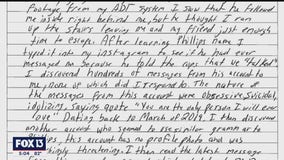 footage from my ADT system I saw that he followed
me inside right behind me, but he thought I ran
up the stairs leaving me and my friend just enough
time to escape. After learning Phillips name I
typed it into my instagram to see if he had ever
messaged me because he told the cops that we "talked"
I discovered hundreds of messages from his account to
me, none of which did I respond to. The nature of
the messages from this account were obsessive, suicidal,
idolizing, saying quote "You are the only person I will ever
love" Dating back to March of 2019. I then discovered
another account who seemed to use similar grammar to
this account has no profile photo and was
threatening. I then read the latest message
FOX 13
5:04 82°